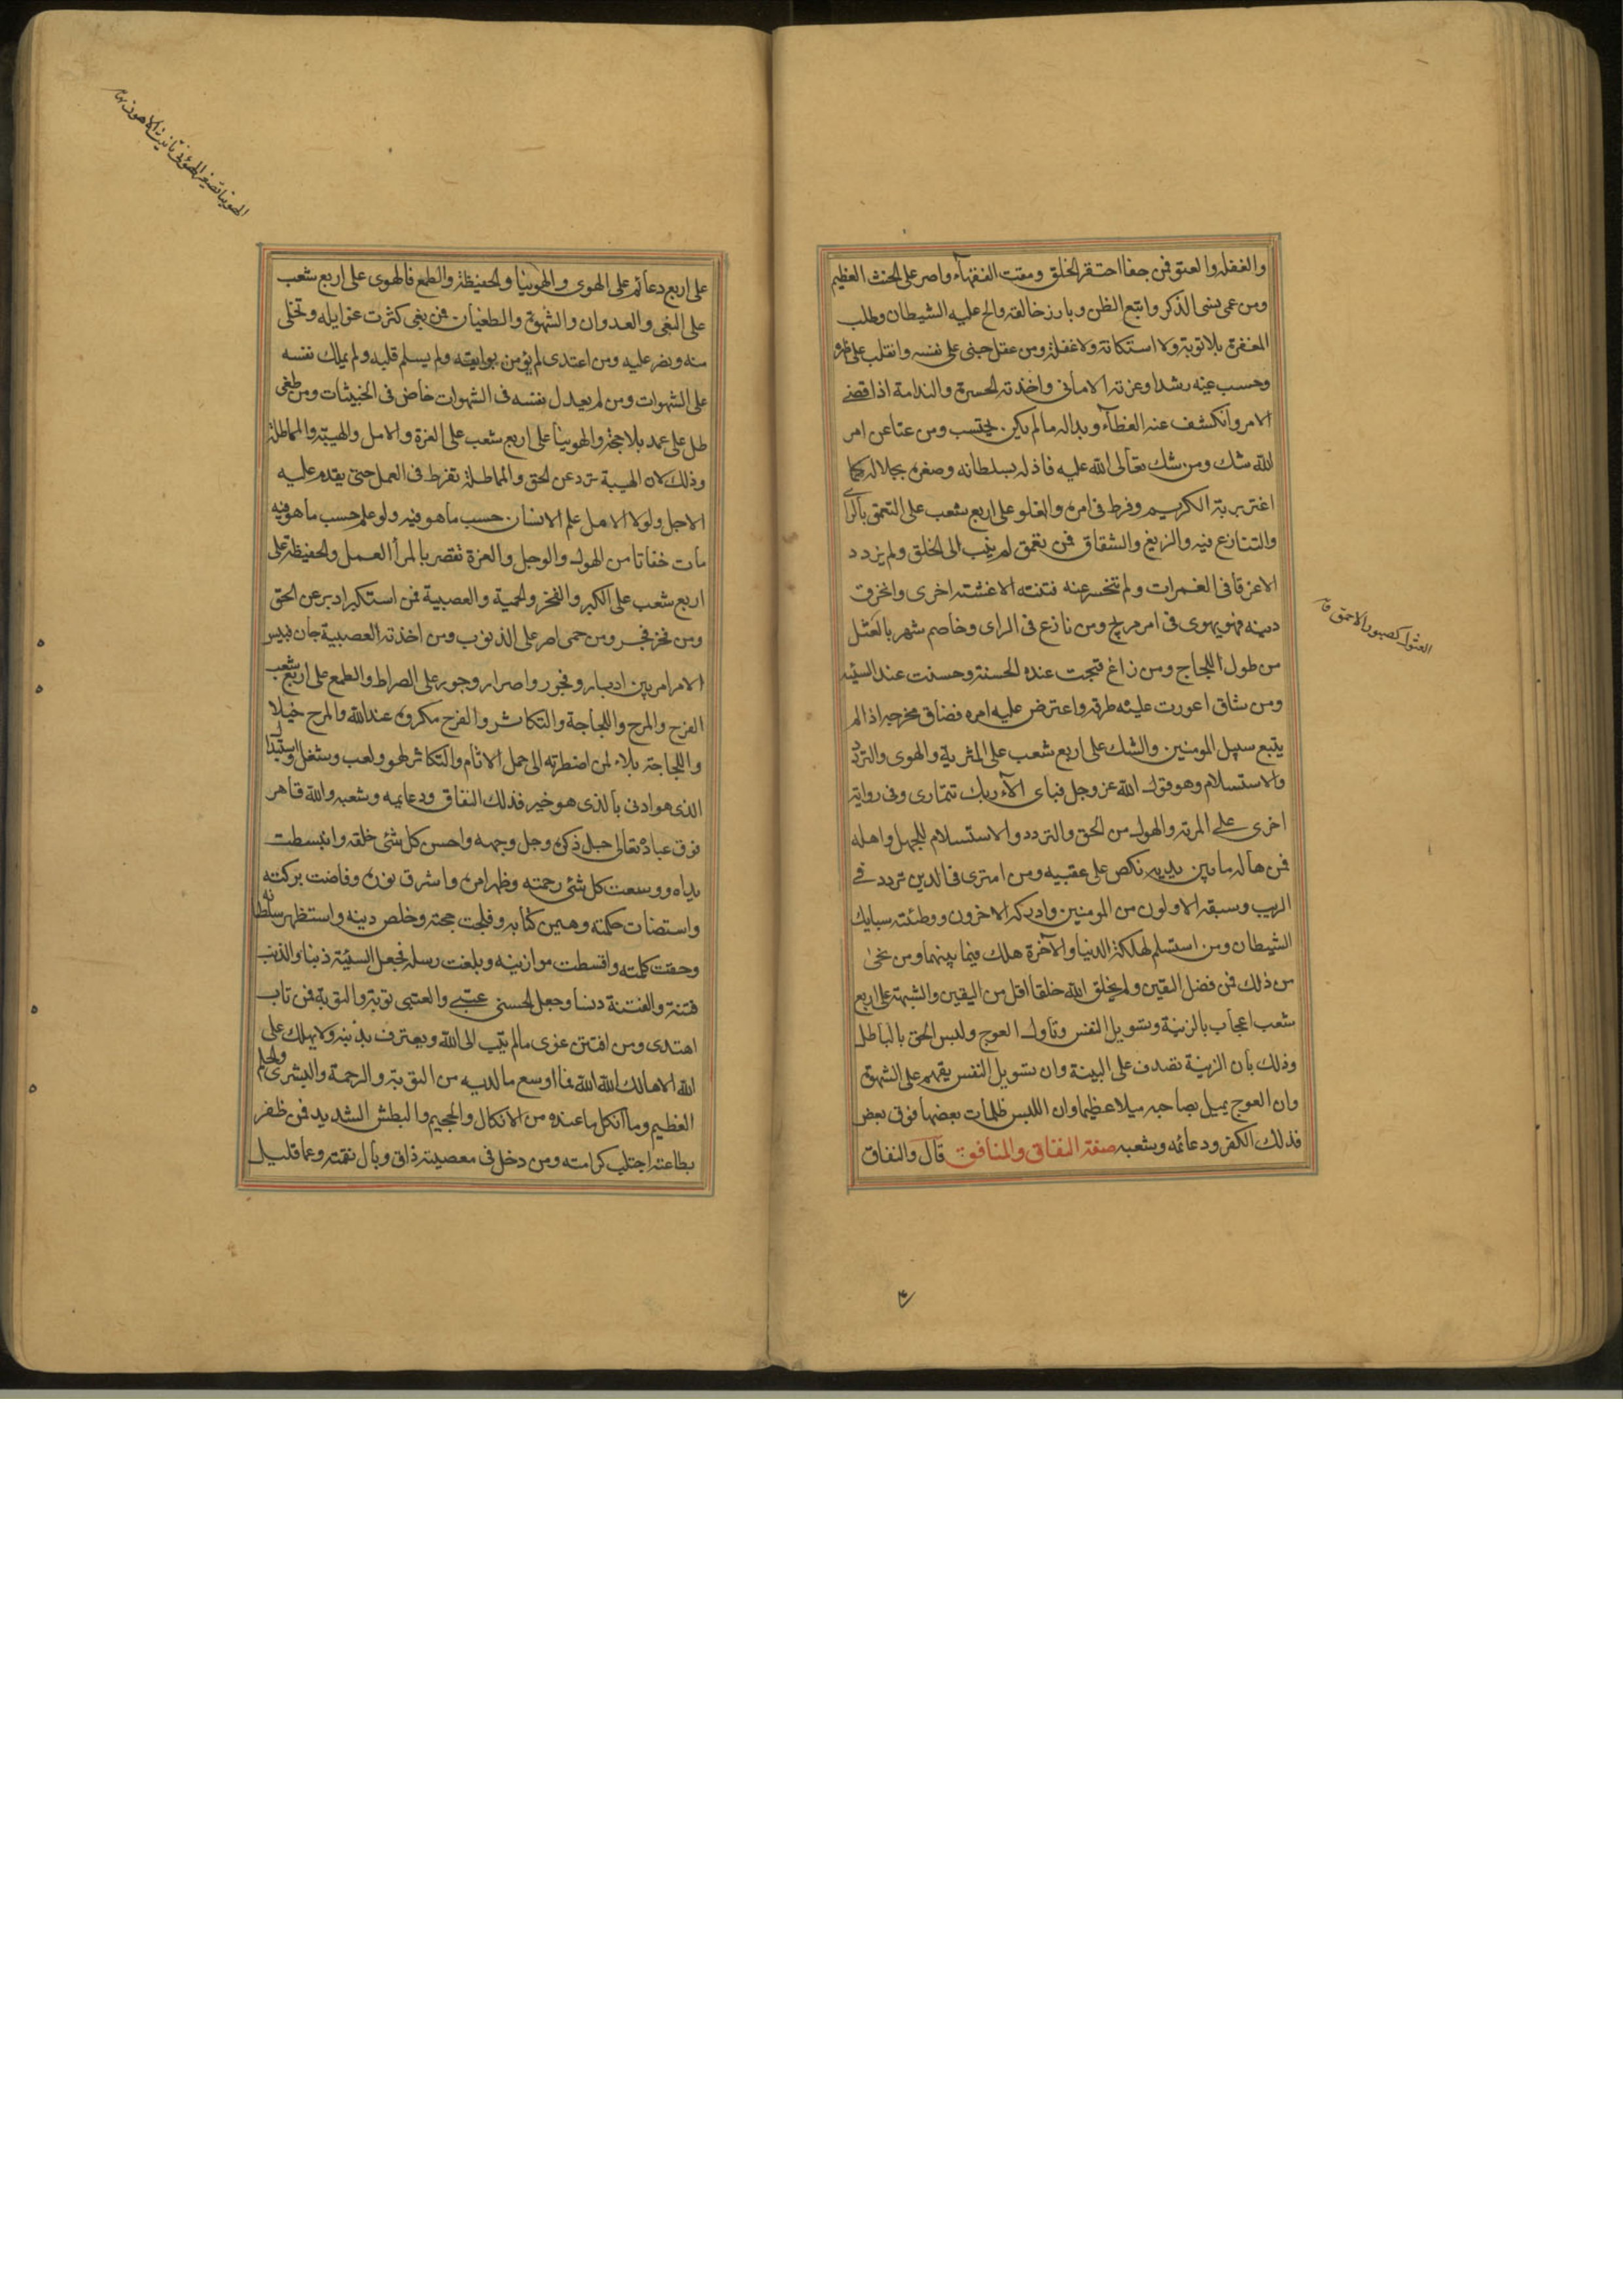 والغفلة والعتو فمن جفا احتقر الخلق ومقت الفقهاء واصر على الحنث العظيم
ومن عمى نسى الذكر واتبع الظن وبارز خالقه والح عليه الشيطان وطلب
المغفرة بلا توبة ولا استكانة ولا غفلة ومن عقل جنى على نفسه وانقلب على ظهره
وحسب غيه رشدا وغرته الامانى واخذته الحسرة والندامة اذا قضى
الامر وانكشف عنه الغطآء وبدا له ما لم يكن يحتسب ومن عتا عن امر
الله شك ومن شك تعالى الله عليه فاذله بسلطانه وصغره بجلاله كما
اغتر بربه الكريم وفرط فى امره والغلو على اربع شعب على التعمق بالرأى
والتنازع فيه والزيغ والشقاق فمن تعمق لم ينب الى الخلق ولم يزدد
الا غرقا فى الغمرات ولم تنحسر عنه فتنة الا غشته اخرى وانخرق
دينه فهو يهوى فى امر مريج ومن نازع فى الراى وخاصم شهر بالعثل
من طول اللجاج ومن زاغ قبحت عنده الحسنة وحسنت عند السيئة
ومن شاق اعورت عليه طرقه واعترض عليه امره فضاق مخرجه اذا لم
يتبع سبيل المومنين والشك على اربع شعب على المرية والهوى والتردد
والاستسلام وهو قول الله عز وجل فباى الآء ربك تتمارى وفى رواية
اخرى على المرية والهول من الحق والتردد والاستسلام للجهل واهله
فمن هاله ما بين يديه نكص على عقبيه ومن امترى فى الدين تردد فى
الريب وسبقه الاولون من المومنين وادركه الاخرون ووطئته سبابك
الشيطان ومن استسلم لهلكة الدنيا والآخرة هلك فيما بينهما ومن نجى
من ذلك فمن فضل اليقين ولم يخلق الله خلقا اقل من اليقين والشبهة على اربع
شعب اعجاب بالزينة وتسويل النفس وتاول العوج ولبس الحق بالباطل
وذلك بان الزينة تصدف على البينة وان تسويل النفس يقهم على الشهوة
وان العوج يميل بصاحبه ميلا عظيما وان اللبس ظلمات بعضها فوق بعض
فذلك الكفر ودعائمه وشعبه صفة النفاق والمنافق قال والنفاق
على اربع دعائم على الهوى والهوينا والحفيظة والطمع فالهوى على اربع شعب
على البغى والعدوان والشهوة والطغيان فمن بغى كثرت غوايله وتخلى
منه ونصر عليه ومن اعتدى لم يؤمن بوايقه ولم يسلم قلبه ولم يملك نفسه
على الشهوات ومن لم يعدل نفسه فى الشهوات خاض فى الخبيثات ومن طغى
ظل على عمد بلا حجة والهوينا على اربع شعب على الغرة والامل والهيبة والمماطلة
وذلك لان الهيبة ترد عن الحق والمماطلة تفرط فى العمل حتى يقدم عليه
الاجل ولولا الامل علم الانسان حسب ما هو فيه ولو علم حسب ما هو فيه
مات خفاتا من الهول والوجل والغرة تقصر بالمرأ العمل والحفيظة على
اربع شعب على الكبر والفخر والحمية والعصبية فمن استكبر ادبر عن الحق
ومن فخر فجر ومن حمى اصر على الذنوب ومن اخذته العصبية جار فبئس
الامر امر بين ادبار وفجور واصرار وجور على الصراط والطمع على اربع شعب
الفرح والمرح واللجاجة والتكاثر والفرح مكروه عند الله والمرح خيلا
واللجاجة بلاء لمن اضطرته الى حمل الاثام والتكاثر لهو ولعب وشغل واستبدال
الذى هو ادنى بالذى هو خير فذلك النفاق ودعايمه وشعبه والله قاهر
فوق عباده تعالى جل ذكره وجل وجهه واحسن كل شئى خلقه وانبسطت
يداه ووسعت كل شئى رحمته وظهر امره واشرق نوره وفاضت بركته
واستضات حكمته وهيمن كتابه وفلجت حجته وخلص دينه واستظهر سلطانه
وحقت كلمته واقسطت موازينه وبلغت رسله فجعل السيئة ذنبا والذنب
فتنة والفتنة دنسا وجعل الحسنى عتبى والعتبى توبة والتوبة فمن تاب
اهتدى ومن افتتن غوى ما لم يتب الى الله ويعترف بذنبه ولا يهلك على
الله الا هالك الله الله فما اوسع ما لديه من التوبة والرحمة والبشرى والحلم
العظيم وما انكل ما عنده من الانكال والجحيم والبطش الشديد فمن ظفر
بطاعته اجتلب كرامته ومن دخل فى معصيته ذاق وبال نقمته وعما قليل